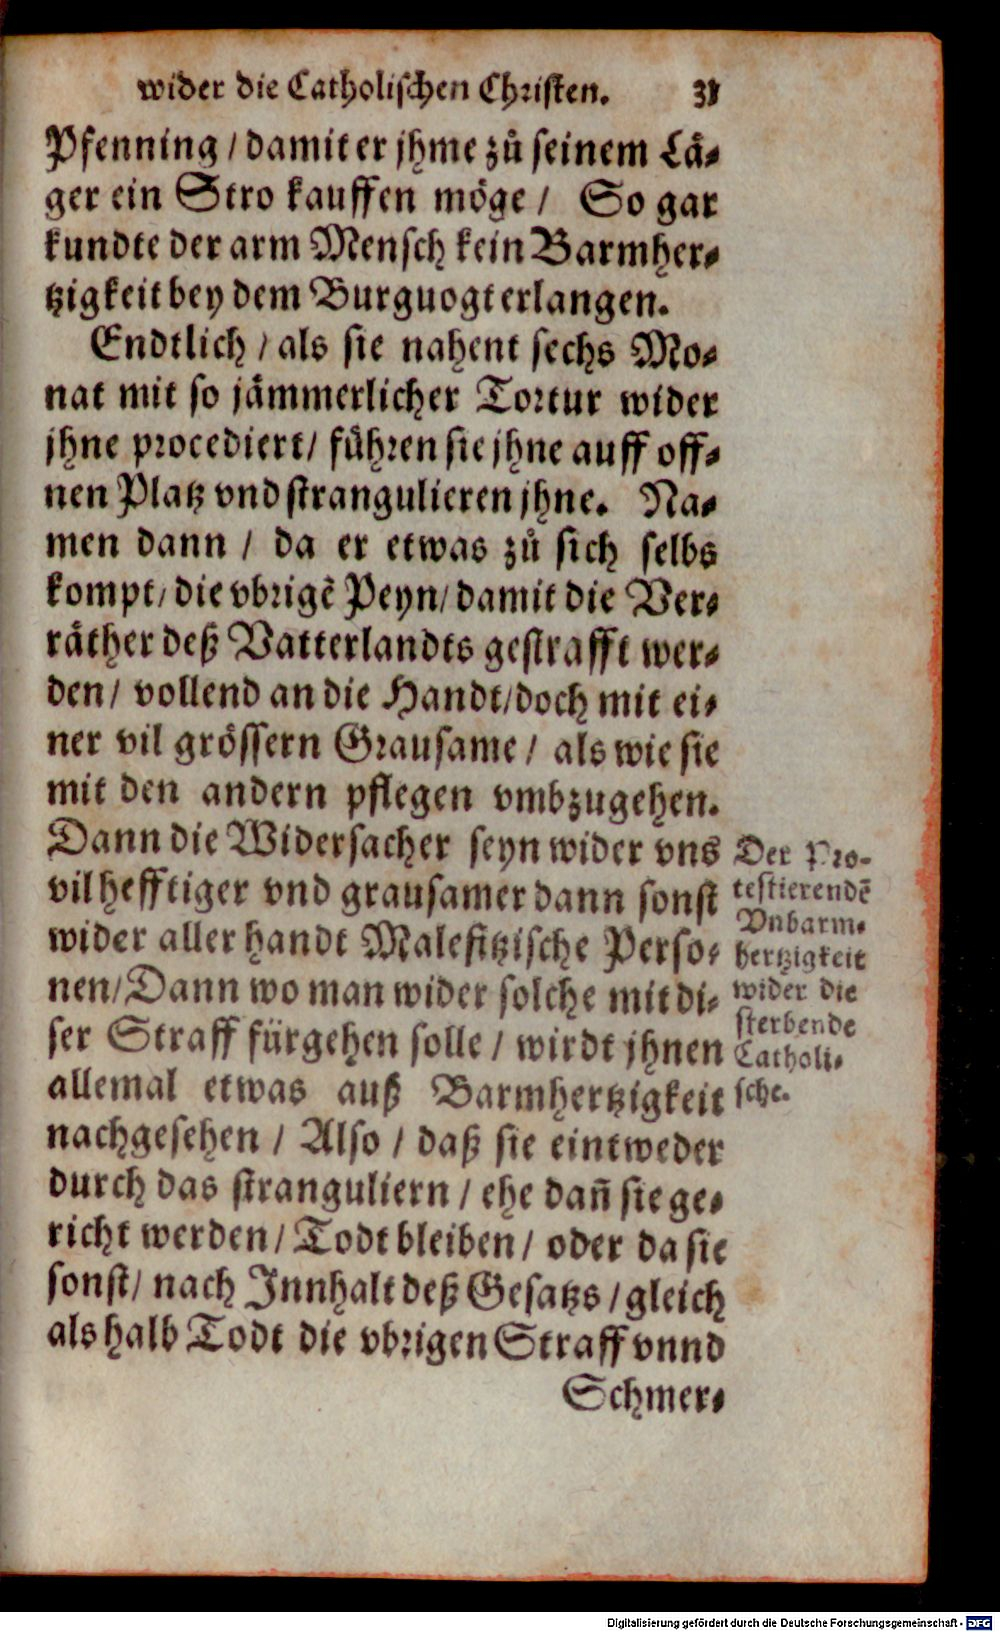 wider die Catholischen Christen. 31
Pfenning / damit er jhme zů seinem Lä⸗
ger ein Stro kauffen möge / So gar
kundte der arm Mensch kein Barmher⸗
tzigkeit bey dem Burguogt erlangen.
Endtlich / als sie nahent sechs Mo⸗
nat mit so jämmerlicher Tortur wider
jhne procediert / führen sie jhne auff off⸗
nen Platz vnd strangulieren jhne. Na⸗
men dann / da er etwas zů sich selbs
kompt / die vbrigẽ Peyn / damit die Ver⸗
räther deß Vatterlandts gestrafft wer⸗
den / vollend an die Handt / doch mit ei⸗
ner vil grössern Grausame / als wie sie
mit den andern pflegen vmbzugehen.
Dann die Widersacher seyn wider vns
vil hefftiger vnd grausamer dann sonst
wider aller handt Malefitzische Perso⸗
nen / Dann wo man wider solche mit di⸗
ser Straff fürgehen solle / wirdt jhnen
allemal etwas auß Barmhertzigkeit
nachgesehen / Also / daß sie eintweder
durch das stranguliern / ehe dañ sie ge⸗
richt werden / Todt bleiben / oder da sie
sonst / nach Jnnhalt deß Gesatzs / gleich
als halb Todt die vbrigen Straff vnnd
Schmer⸗
Der Pro⸗
testierendẽ
Vnbarm⸗
hertzigkeit
wider die
sterbende
Catholi⸗
sche.
Digitalisierung gefördert durch die Deutsche Forschungsgemeinschaft - DFG